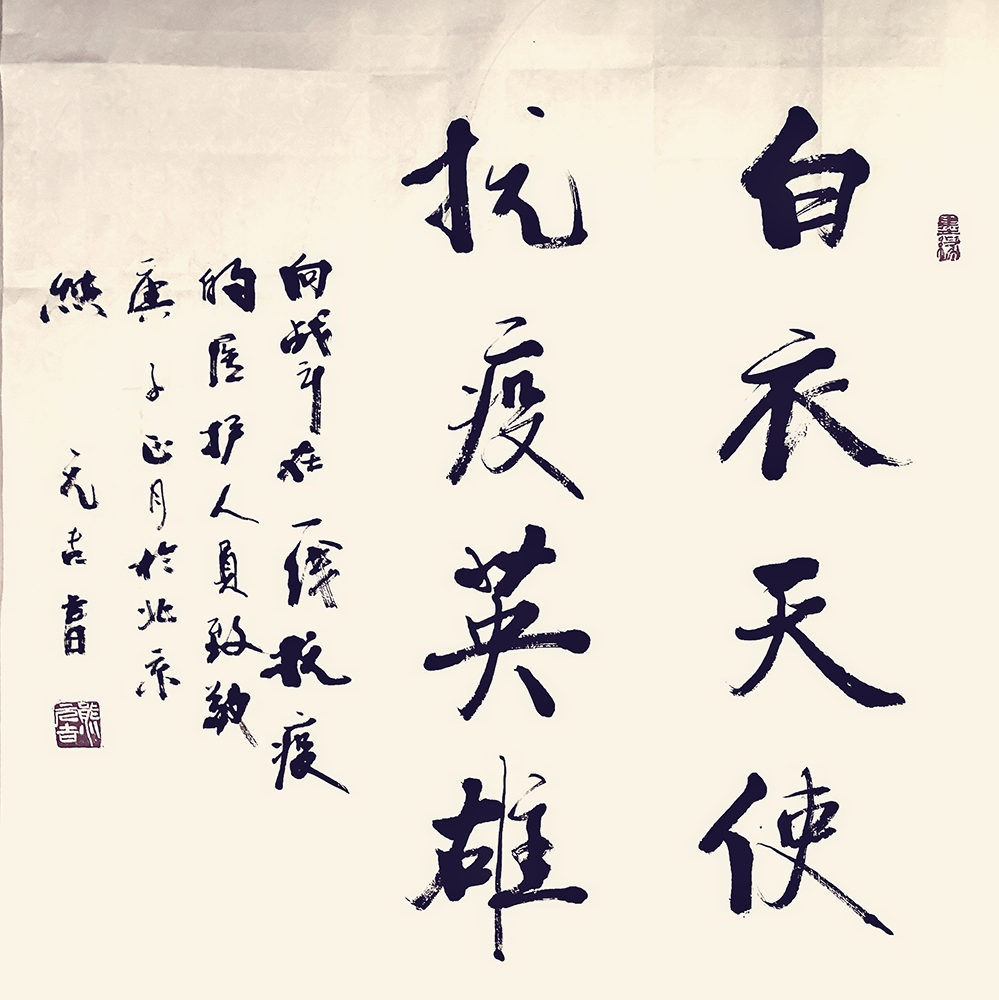 白衣天使
抗疫英雄
向战斗在一线抗疫
的医护人员致敬
庚子正月於北京
熊元吉书
墨缘
熊元吉